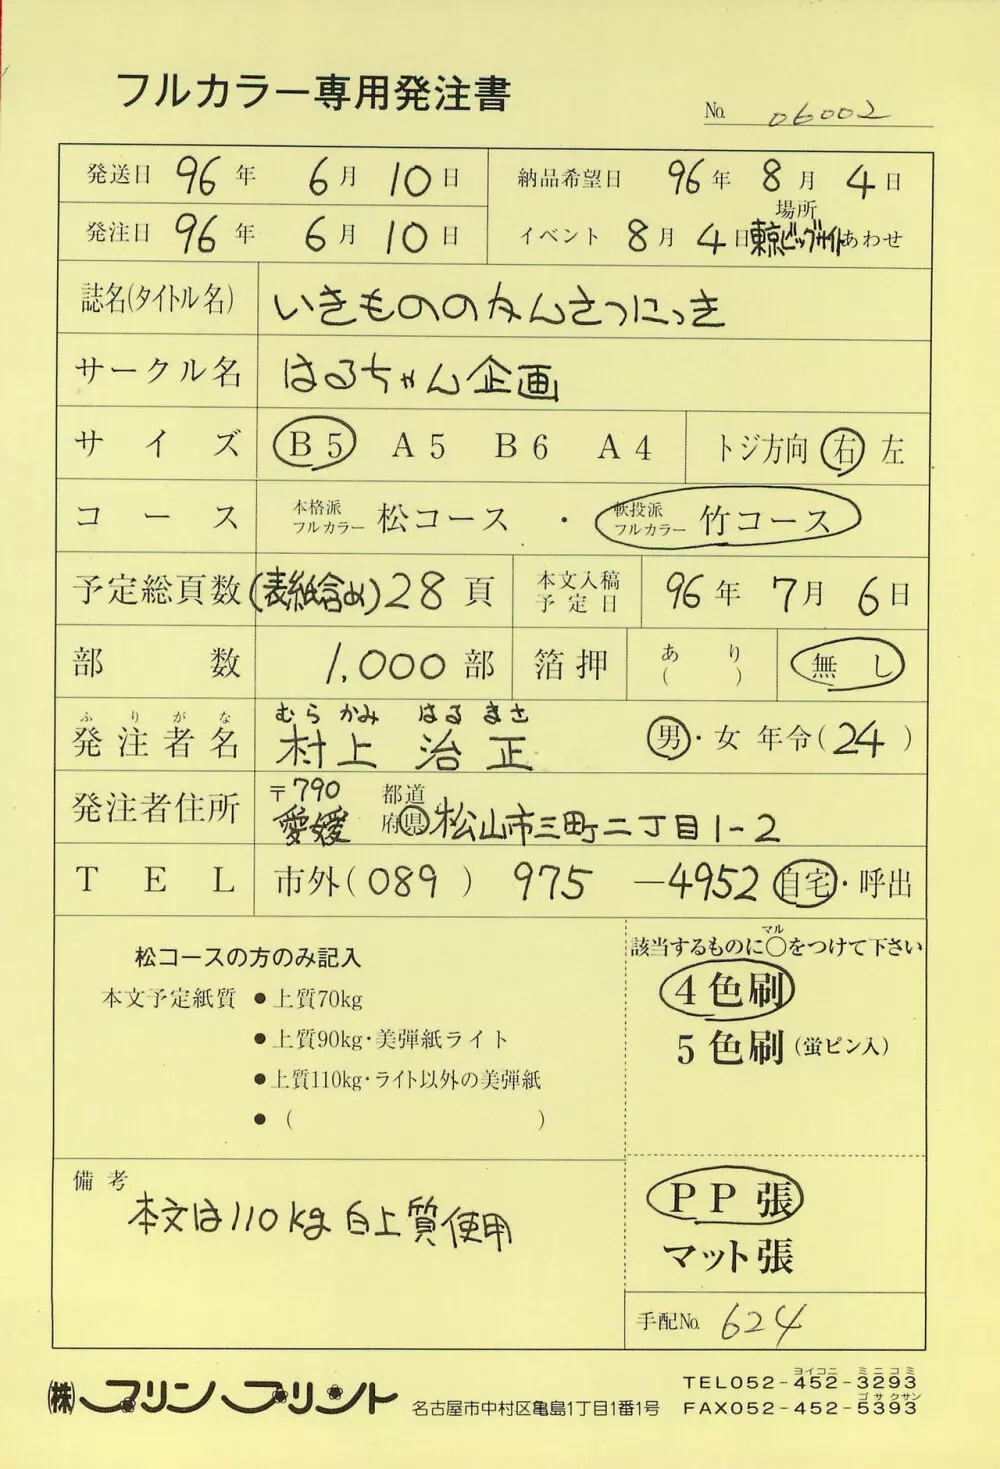 フルカラー専用発注書
No. 06002
発送日 96年 6月 10日
納品希望日 96年 8月 4日
発注日 96年 6月 10日
場所
イベント 8月 4日 東京ビッグサイト あわせ
誌名(タイトル名) いきもののかんさつにっき
サークル名 はるちゃん企画
サイズ B5 A5 B6 A4 トジ方向 右 左
コース 本格派フルカラー 松コース ・ 軟投派フルカラー 竹コース
予定総頁数 (表紙含め) 28頁 本文入稿予定日 96年 7月 6日
部数 1,000部 箔押 あり( ) 無し
ふりがな むらかみ はるまさ
発注者名 村上 治正 男・女 年令(24)
発注者住所 〒790
愛媛 都道府県 松山市三町二丁目1-2
TEL 市外(089) 975-4952 自宅・呼出
松コースの方のみ記入
本文予定紙質 ●上質70kg
●上質90kg・美弾紙ライト
●上質110kg・ライト以外の美弾紙
●( )
マル
該当するものに○をつけて下さい
4色刷
5色刷(蛍ピン入)
備考
本文は110kg白上質使用
PP張
マット張
手配No. 624
㈱プリンプリント
名古屋市中村区亀島1丁目1番1号
ヨイコニ ミニコミ
TEL052-452-3293
ゴサクサン
FAX052-452-5393